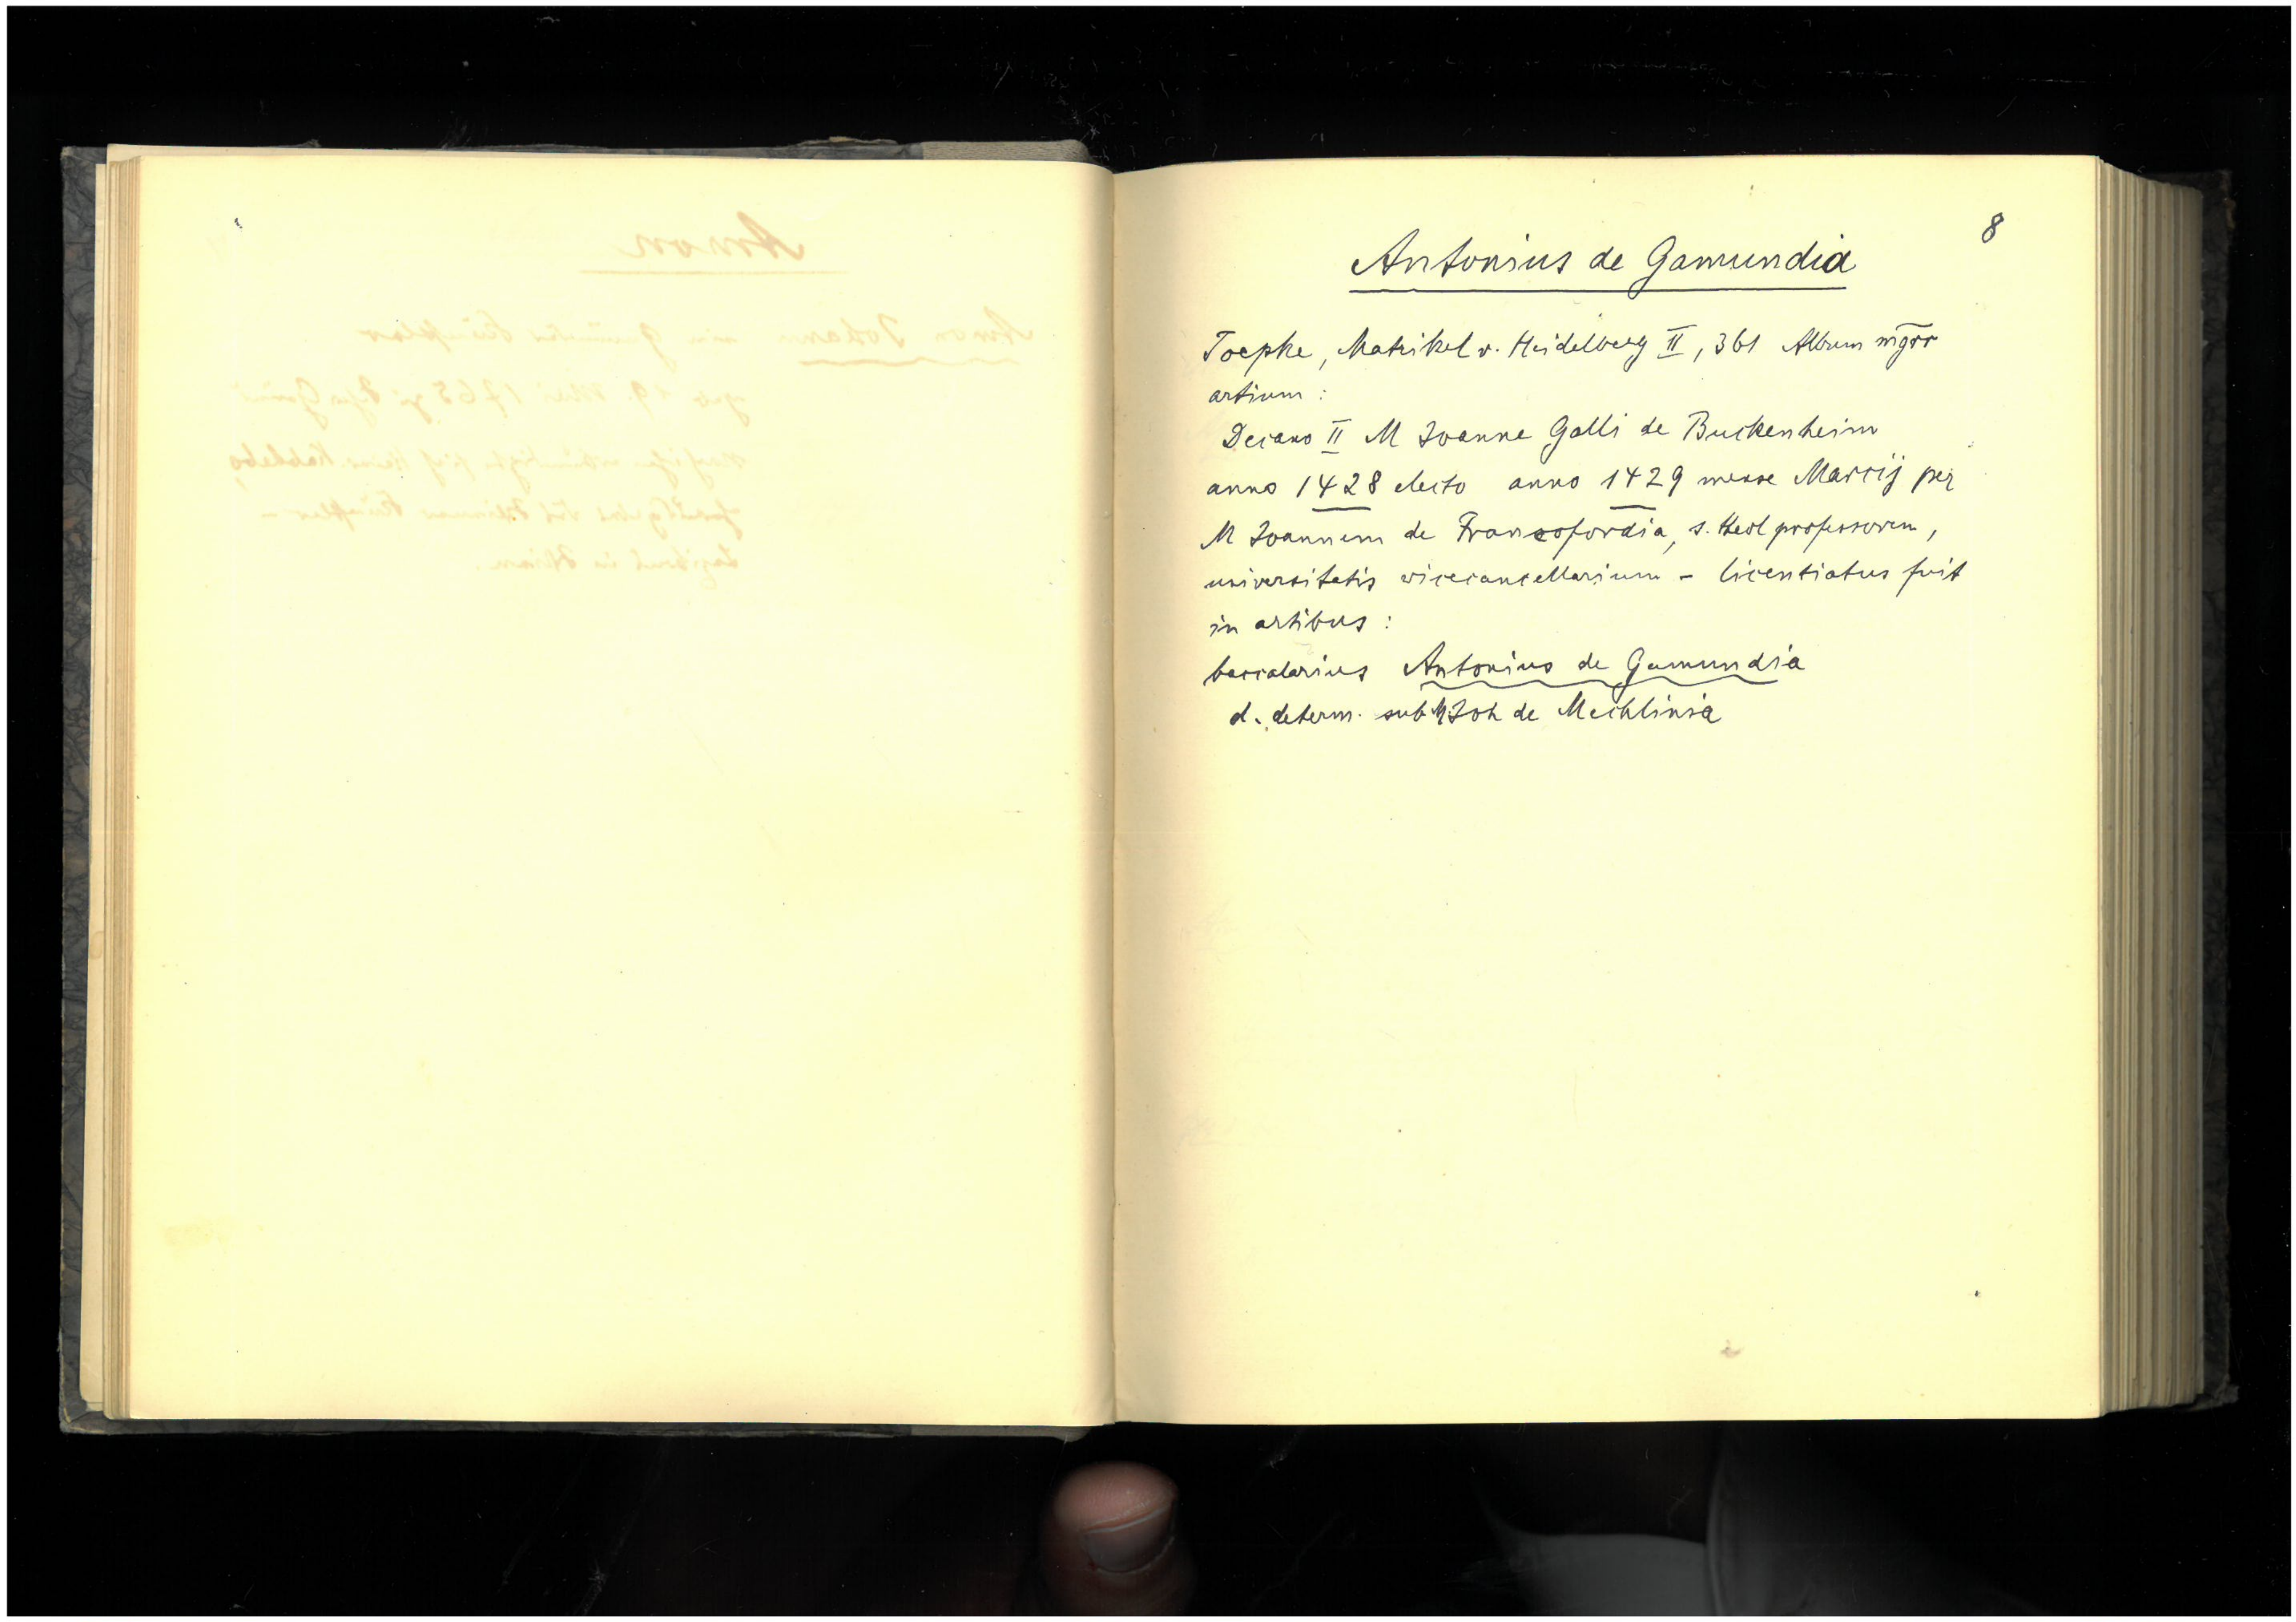 8
Antonius de Gamundia
Toepke, Matrikel v. Heidelberg II, 361 Album mgrr
artium :
Decano II M Joanne Galli de Buckenheim
anno 1428 electo anno 1429 mense Marcij per
M Joannem de Francofordia, s. theol professorem,
universitatis vicecancellarium – licentiatus fuit
in artibus :
baccalarius Antonius de Gamundia
d. determ. sub M. Joh de Mechlinia